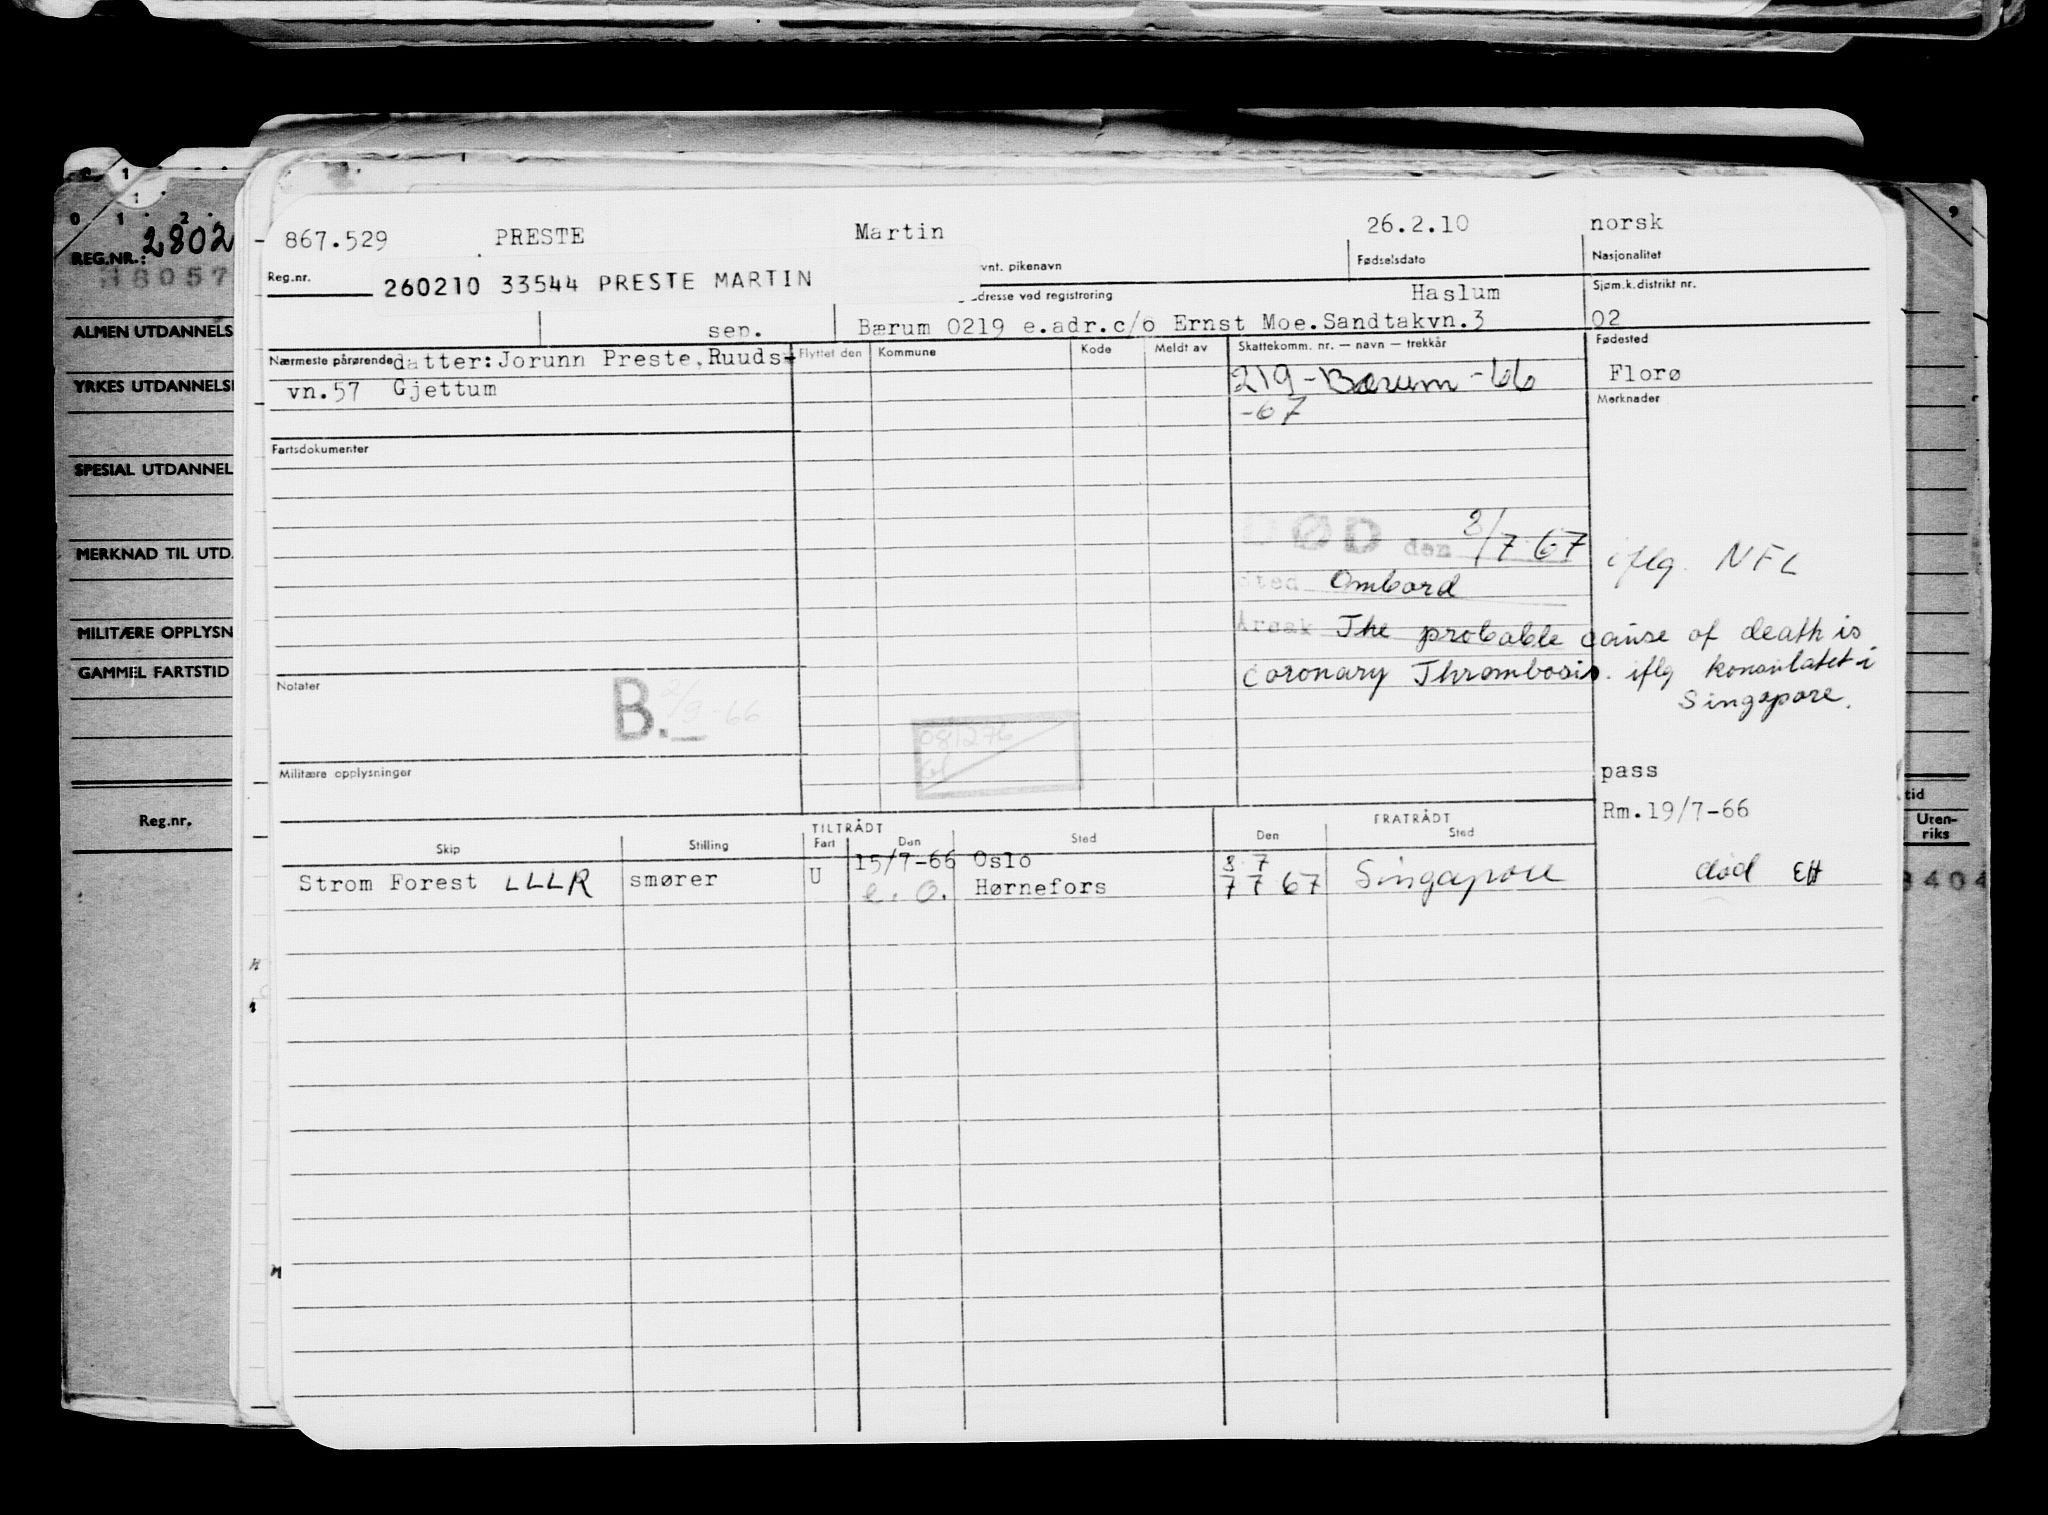 REG.NR.: 2802
18057
ALMEN UTDANNELS
YRKES UTDANNELS
SPESIAL UTDANNEL
MERKNAD TIL UTD.
MILITÆRE OPPLYSN
GAMMEL FARTSTID
Reg.nr.
867.529 PRESTE Martin 26.2.10 norsk
Reg.nr. vnt. pikenavn Fødselsdato Nasjonalitet
260210 33544 PRESTE MARTIN
adresse ved registrering Haslum Sjøm.k.distrikt nr.
sep. Bærum 0219 e.adr.c/o Ernst Moe.Sandtakvn.3 02
Nærmeste pårørende datter: Jorunn Preste, Ruuds- Flyttet den Kommune Kode Meldt av Skattekomm. nr. — navn — trekkår Fødested
vn.57 Gjettum 219-Bærum-66 Florø
-67 Merknader
Fartsdokumenter
DØD den 8/7 67 iflg. NFL
Sted Ombord
Årsak The probable cause of death is
coronary Thrombosis. iflg konsulatet i
Singapore.
Notater B. 2/9-66
081276
Militære opplysninger
pass
Rm.19/7-66
TILTRÅDT FRATRÅDT
Skip Stilling Fart Den Sted Den Sted
15/7-66 Oslo 8 7
Strom Forest LLLR smører U e.o. Hørnefors 7 7 67 Singapore død EH
tid
Uten-
riks
8404